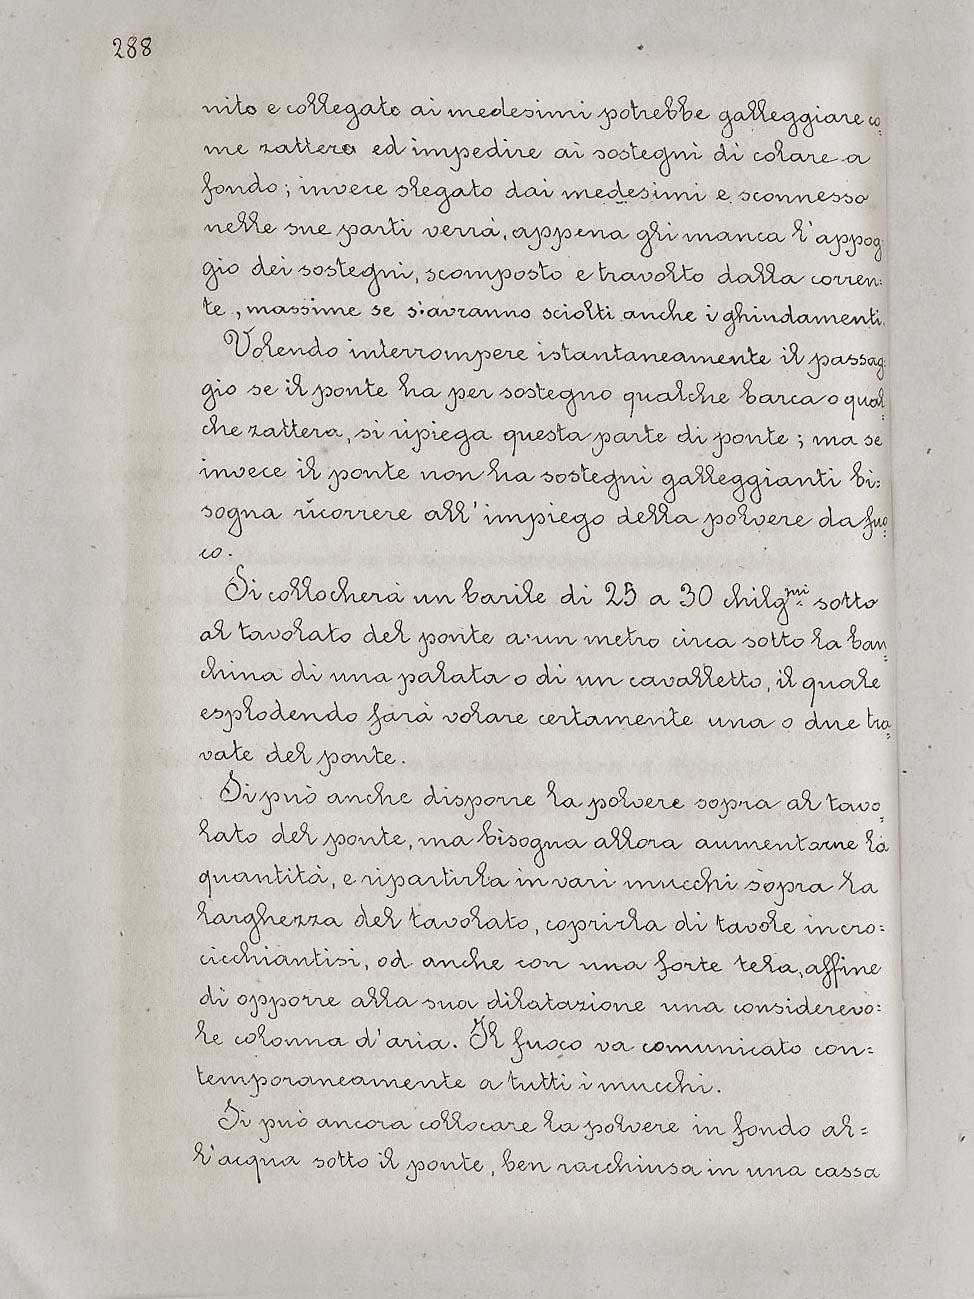 288
nito e collegato ai medesimi potrebbe galleggiare co=
me zattera ed impedire ai sostegni di colare a
fondo; invece slegato dai medesimi e sconnesso
nelle sue parti verrà, appena gli manca l'appog=
gio dei sostegni, scomposto e travolto dalla corren=
te, massime se s'avranno sciolti anche i ghindamenti.
Volendo interrompere istantaneamente il passag=
gio se il ponte ha per sostegno qualche barca o qual=
che zattera, si ripiega questa parte di ponte; ma se
invece il ponte non ha sostegni galleggianti bi=
sogna ricorrere all'impiego della polvere da fuo=
co.
Si collocherà un barile di 25 a 30 chilgmi sotto
al tavolato del ponte a un metro circa sotto la ban=
china di una palata o di un cavalletto, il quale
esplodendo farà volare certamente una o due tra=
vate del ponte.
Si può anche disporre la polvere sopra al tavo=
lato del ponte, ma bisogna allora aumentarne la
quantità, e ripartirla in vari mucchi sopra la
larghezza del tavolato, coprirla di tavole incro=
cicchiantisi, od anche con una forte tela, affine
di opporre alla sua dilatazione una considerevo=
le colonna d'aria. Il fuoco va comunicato con=
temporaneamente a tutti i mucchi.
Si può ancora collocare la polvere in fondo al=
l'acqua sotto il ponte, ben racchiusa in una cassa